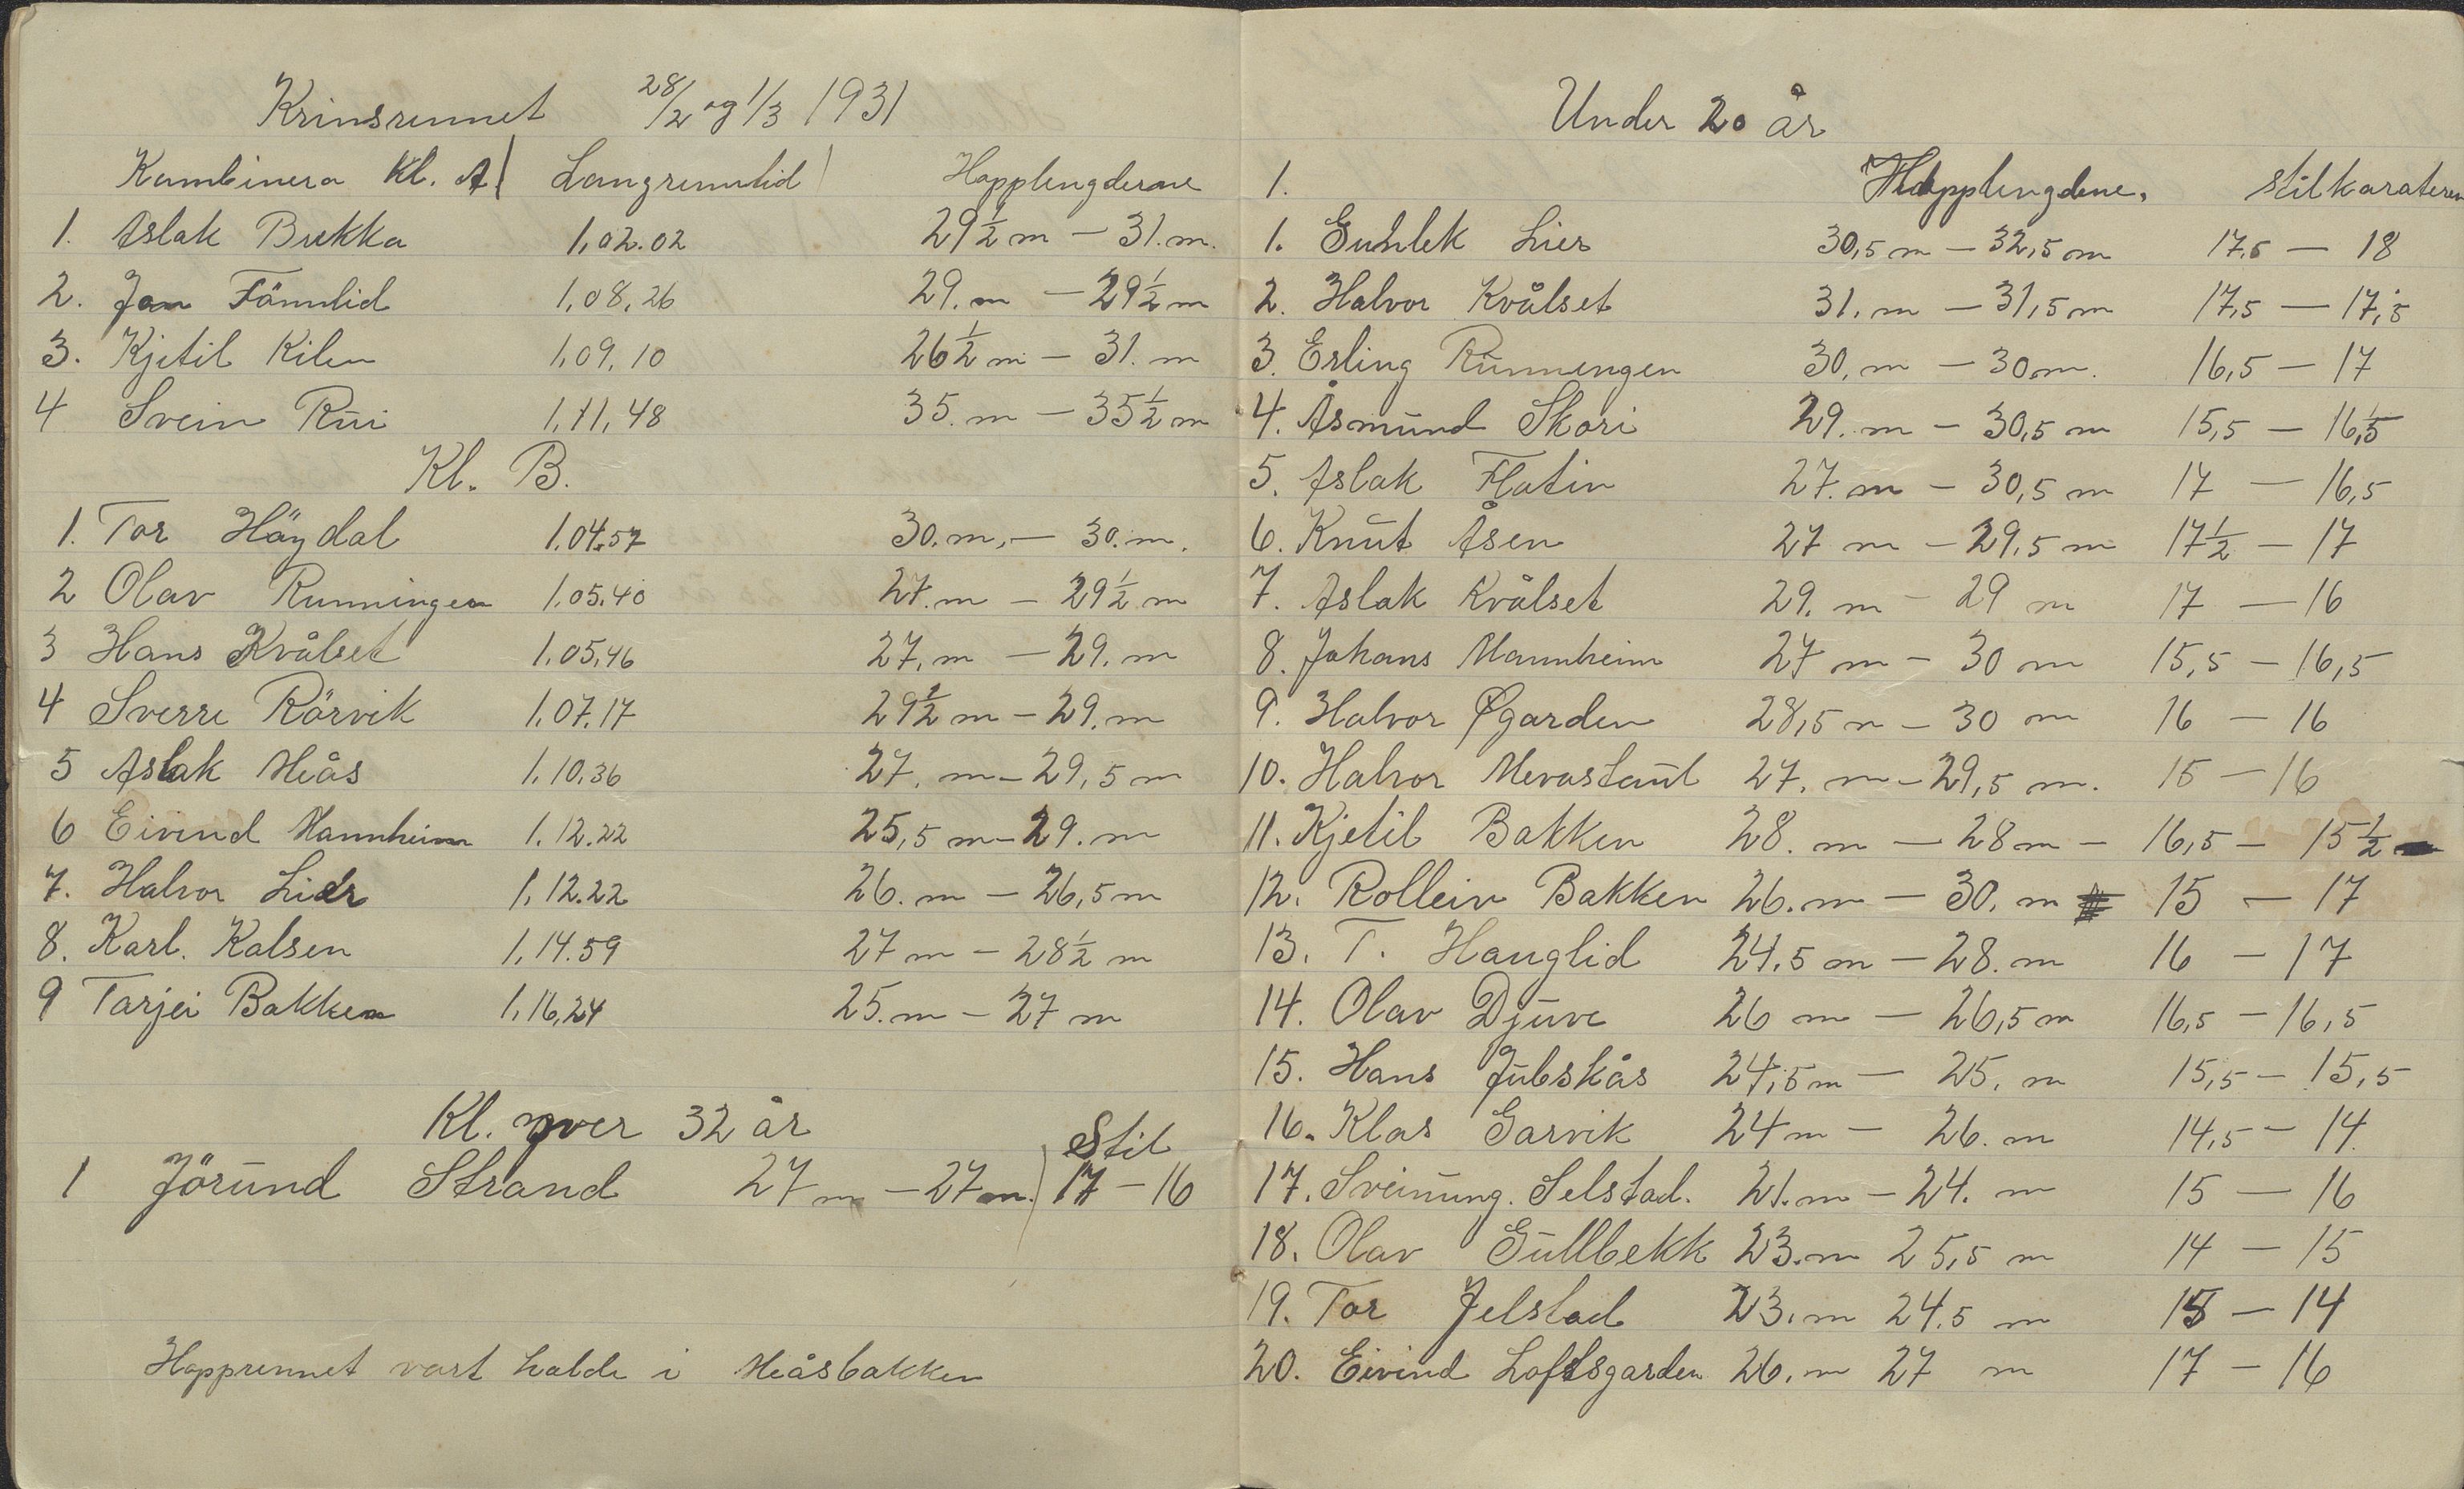 Krinsrennet 28/2 og 1/3 1931
Kombinera Kl. A Langrennstid Hopplengderne
1. Aslak Bukka 1,02.02 29½ m — 31. m.
2. Jon Fönnlid 1,08,26 29. m — 29½ m
3. Kjetil Kilen 1,09,10 26½ m — 31. m
4 Svein Rui 1,11,48 35. m — 35½ m
Kl. B.
1. Tor Höydal 1.04.57 30. m, — 30. m.
2 Olav Runningen 1,05,40 27. m — 29½ m
3 Hans Kvålset 1,05,46 27, m — 29. m
4 Sverre Rörvik 1,07,17 29½ m — 29. m
5 Aslak Meås 1,10,36 27. m — 29,5 m
6 Eivind Mannheim 1.12.22 25,5 m — 29. m
7. Halvor Lier 1,12.22 26. m — 26,5 m
8. Karl. Kalsen 1,14.59 27 m — 28½ m
9 Tarjei Bakken 1,16,24 25. m — 27 m
Kl. yver 32 år
Stil
1 Jörund Strand 27 m — 27 m. 17 — 16
Hopprennet vart halde i Meåsbakken
Under 20 år
1. Hopplengdene, Stilkarateren
1. Gunlek Lier 30,5 m — 32,5 m 17,5 — 18
2. Halvor Kvålset 31. m — 31,5 m 17,5 — 17,5
3. Erling Runningen 30, m — 30 m. 16,5 — 17
4. Åsmund Skori 29. m — 30,5 m 15,5 — 16,5
5. Aslak Flatin 27. m — 30,5 m 17 — 16,5
6. Knut Åsen 27 m — 29,5 m 17½ — 17
7. Aslak Kvålset 29. m — 29 m 17 — 16
8. Johans Mannheim 27 m — 30 m 15,5 — 16,5
9. Halvor Øgarden 28,5 m — 30 m 16 — 16
10. Halvor Mevastaul 27. m — 29,5 m. 15 — 16
11. Kjetil Bakken 28. m — 28 m — 16,5 — 15½
12. Rollein Bakken 26. m — 30. m 15 — 17
13. T. Hauglid 24,5 m — 28. m 16 — 17
14. Olav Djuve 26 m — 26,5 m 16,5 — 16,5
15. Hans Julskås 24,5 m — 25, m 15,5 — 15,5
16. Klas Garvik 24 m — 26. m 14,5 — 14.
17. Sveinung. Selstad. 21. m — 24. m 15 — 16
18. Olav Gullbekk 23. m 25,5 m 14 — 15
19. Tor Jelstad 23. m 24.5 m 15 — 14
20. Eivind Loftsgarden 26, m 27 m 17 — 16